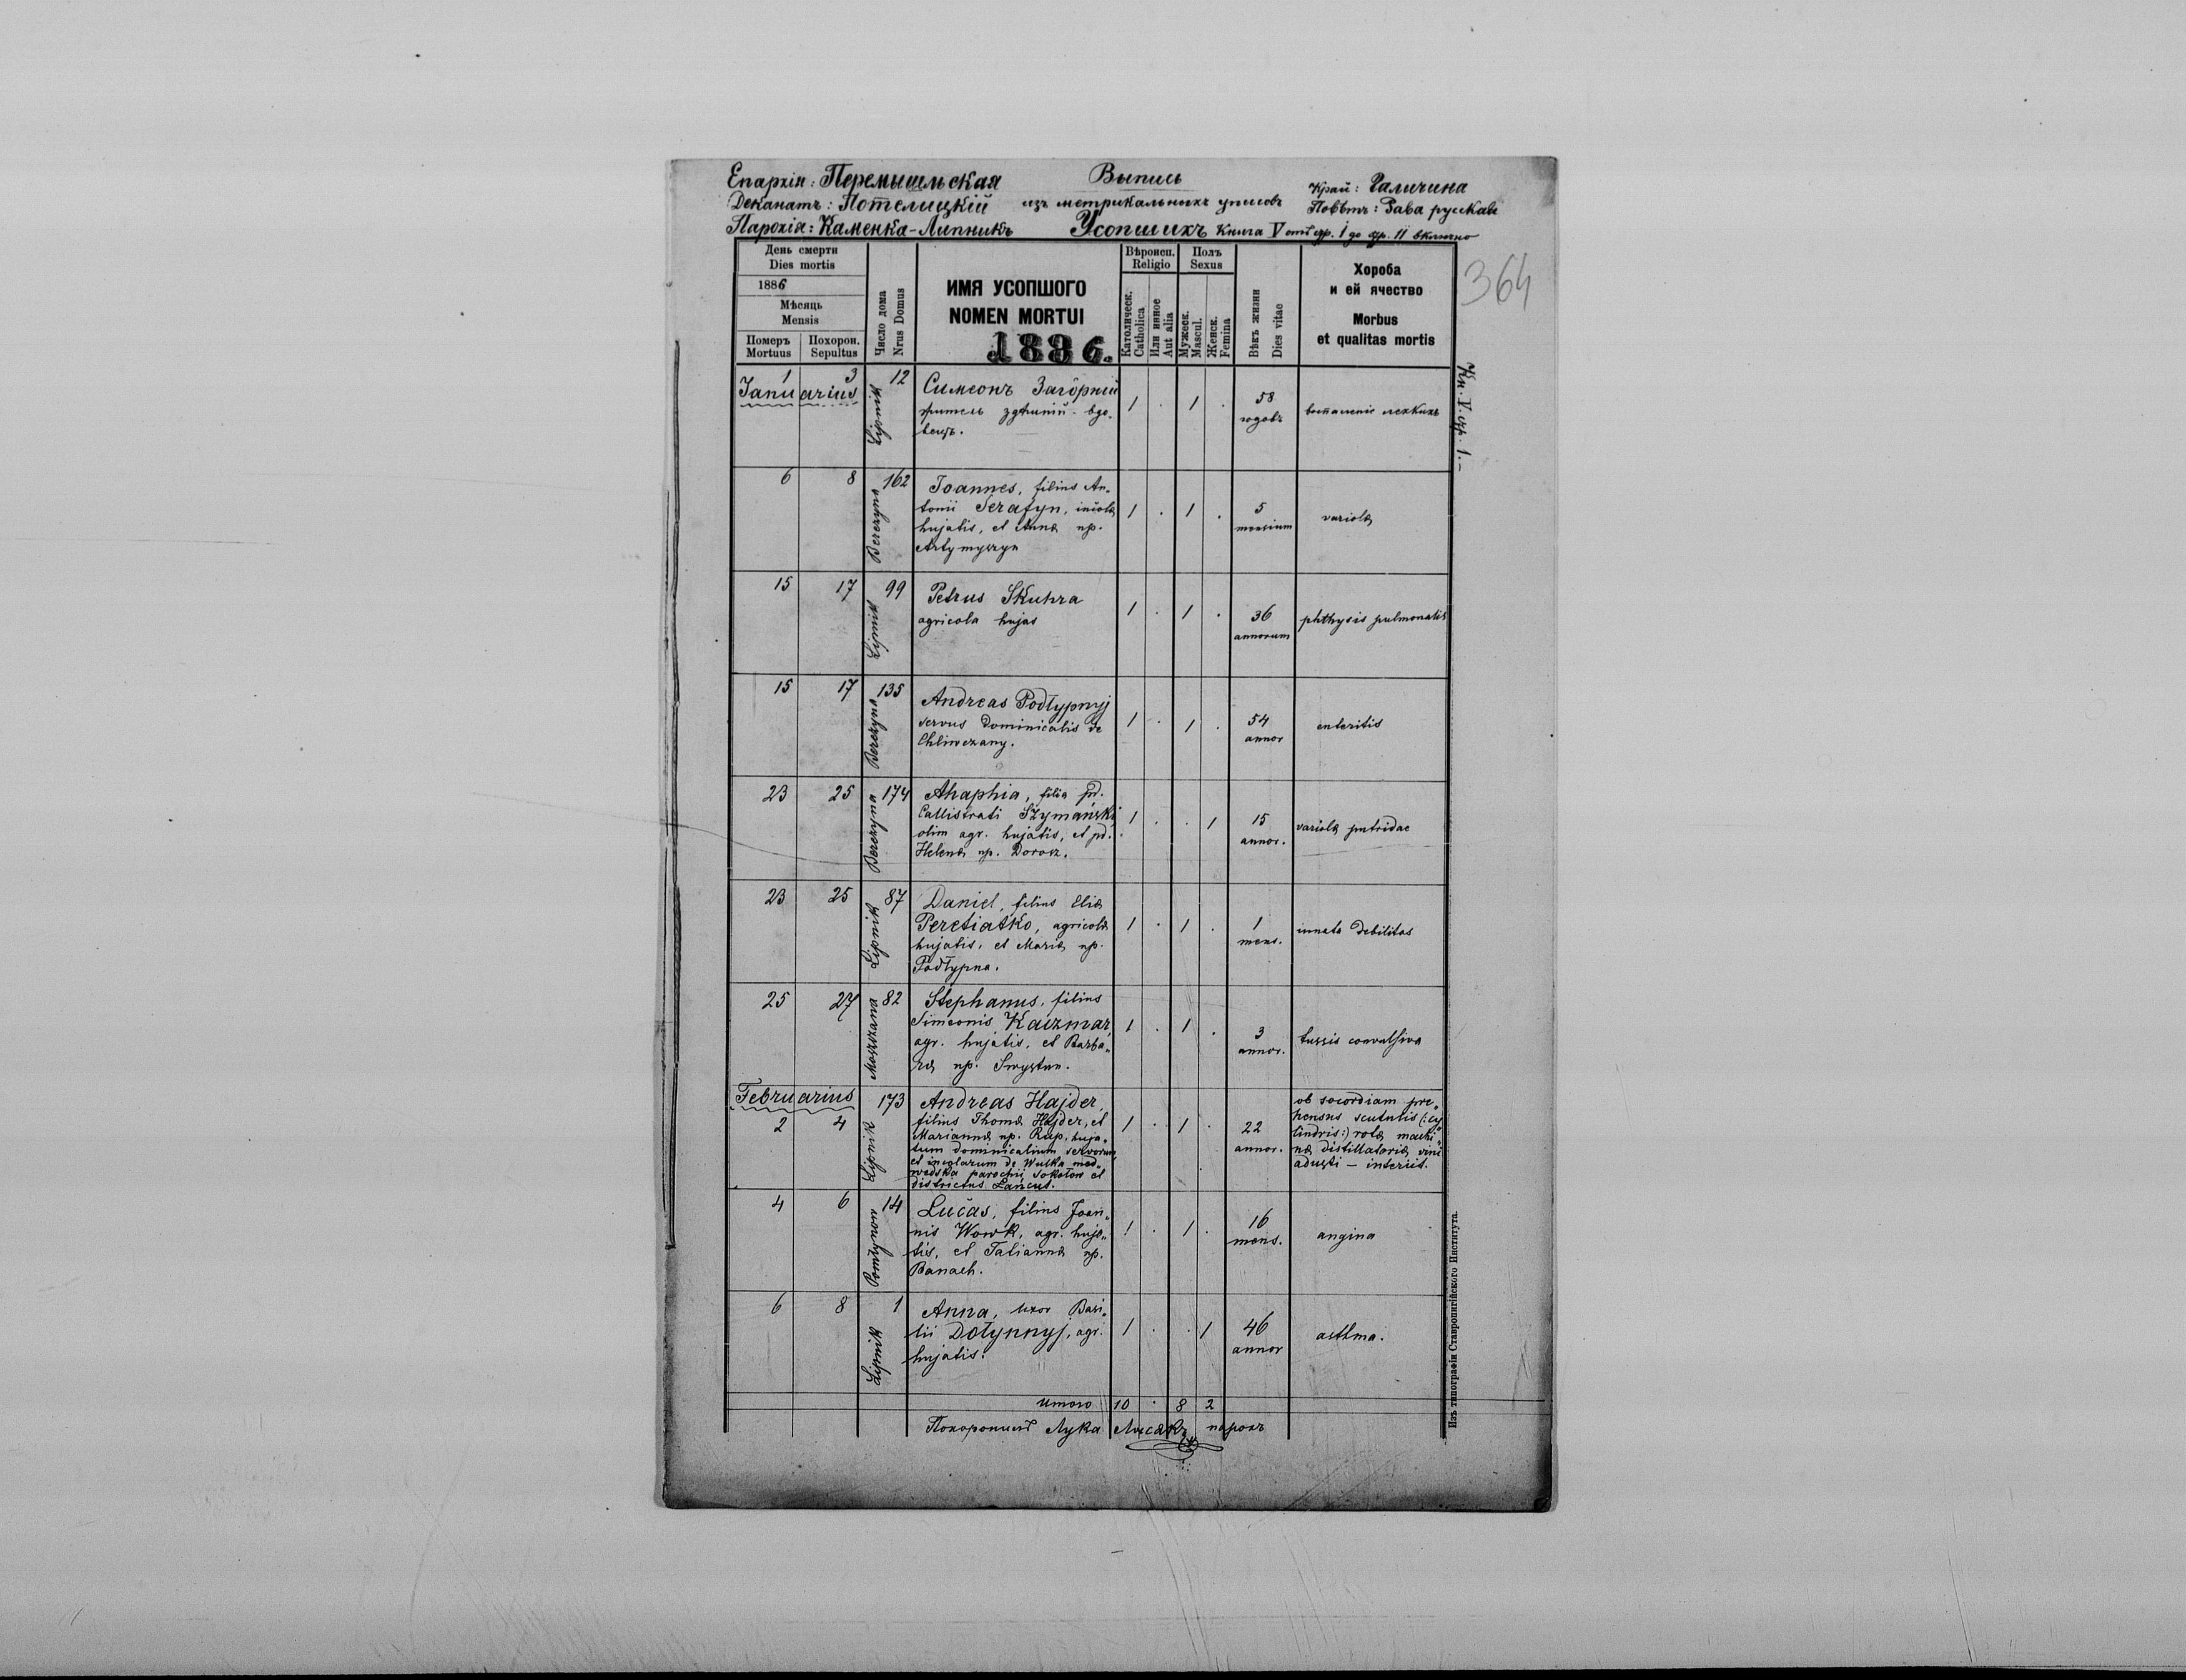 Епархія: Перемышльская
Выпись
Край: Галичина
Деканатъ: Потелицкій
изъ метрикальныхъ уписовъ
Повѣтъ: Рава русская
Парохія: Каменка-Липникъ
Усопшихъ Книга V отъ стр. 1 до стр. 11 включно
364
День смерти
Dies mortis
1886
Мѣсяць
Mensis
Померъ
Mortuus
Похорон.
Sepultus
Число дома
Nrus Domus
ИМЯ УСОПШОГО
NOMEN MORTUI
1886.
Вѣроисп.
Religio
Католическ.
Catholica
Или инное
Aut alia
Полъ
Sexus
Мужеск.
Mascul.
Женск.
Femina
Вѣкъ жизни
Dies vitae
Хороба
и ей ячество
Morbus
et qualitas mortis
Кн. V. стр. 1.-
Januarius
1 3 Lipnik 12
Симеонъ Загôрній
житель здѣшній - вдо„
вецъ.
1 . 1 .
58
годовъ
воспаленіе легкихъ
6 8 Berezyna 162
Joannes, filius An„
tonii Serafyn, incola
hujatis, et Anna np.
Artymyszyn
1 . 1 .
5
mensium
variola
15 17 Lipnik 99
Petrus Skuhra
agricola hujas
1 . 1 .
36
annorum
phthysis pulmonalis
15 17 Berezyna 135
Andreas Podłypnyj
servus dominicalis de
Chliwczany.
1 . 1 .
54
annor
enteritis
23 25 Berezyna 174
Ahaphia, filia pd.
Callistrati Szymański
olim agr. hujatis, et pd.
Helena np. Dorosz.
1 . . 1
15
annor.
variola putridae
23 25 Lipnik 87
Daniel, filius Elia
Peretiatko, agricola
hujatis, et Maria np.
Podłypna.
1 . 1 .
1
mens.
innata debilitas
25 27 Moszczana 82
Stephanus, filius
Simeonis Kaczmar,
agr. hujatis, et Barba„
ra np. Smystun.
1 . 1 .
3
annor.
tussis convulsiva
Februarius
2 4 Lipnik 173
Andreas Hajder,
filius Thoma Hajder, et
Marianna np. Rup, huja„
tum dominicalium servorum,
et incolarum de Wulka med„
wedska parochii Sokołow et
districtus Łańcut.
1 . 1 .
22
annor.
ob socordiam pre„
hensus scutulis (: cy„
lindris:) rota machi„
na distillatoria vini
adusti - interiit.
4 6 Pomłynow 14
Lucas, filius Joan„
nis Wowk, agr. huja„
tis, et Tatianna np.
Banach.
1 . 1 .
16
mens.
angina
6 8 Lipnik 1
Anna, uxor Basi„
lii Dołynnyj, agr.
hujatis.
1 . . 1
46
annor
asthma.
Итого 10 . 8 2
Похоронилъ Лука Лисакъ парохъ
Изъ типографіи Ставропигійского Института.